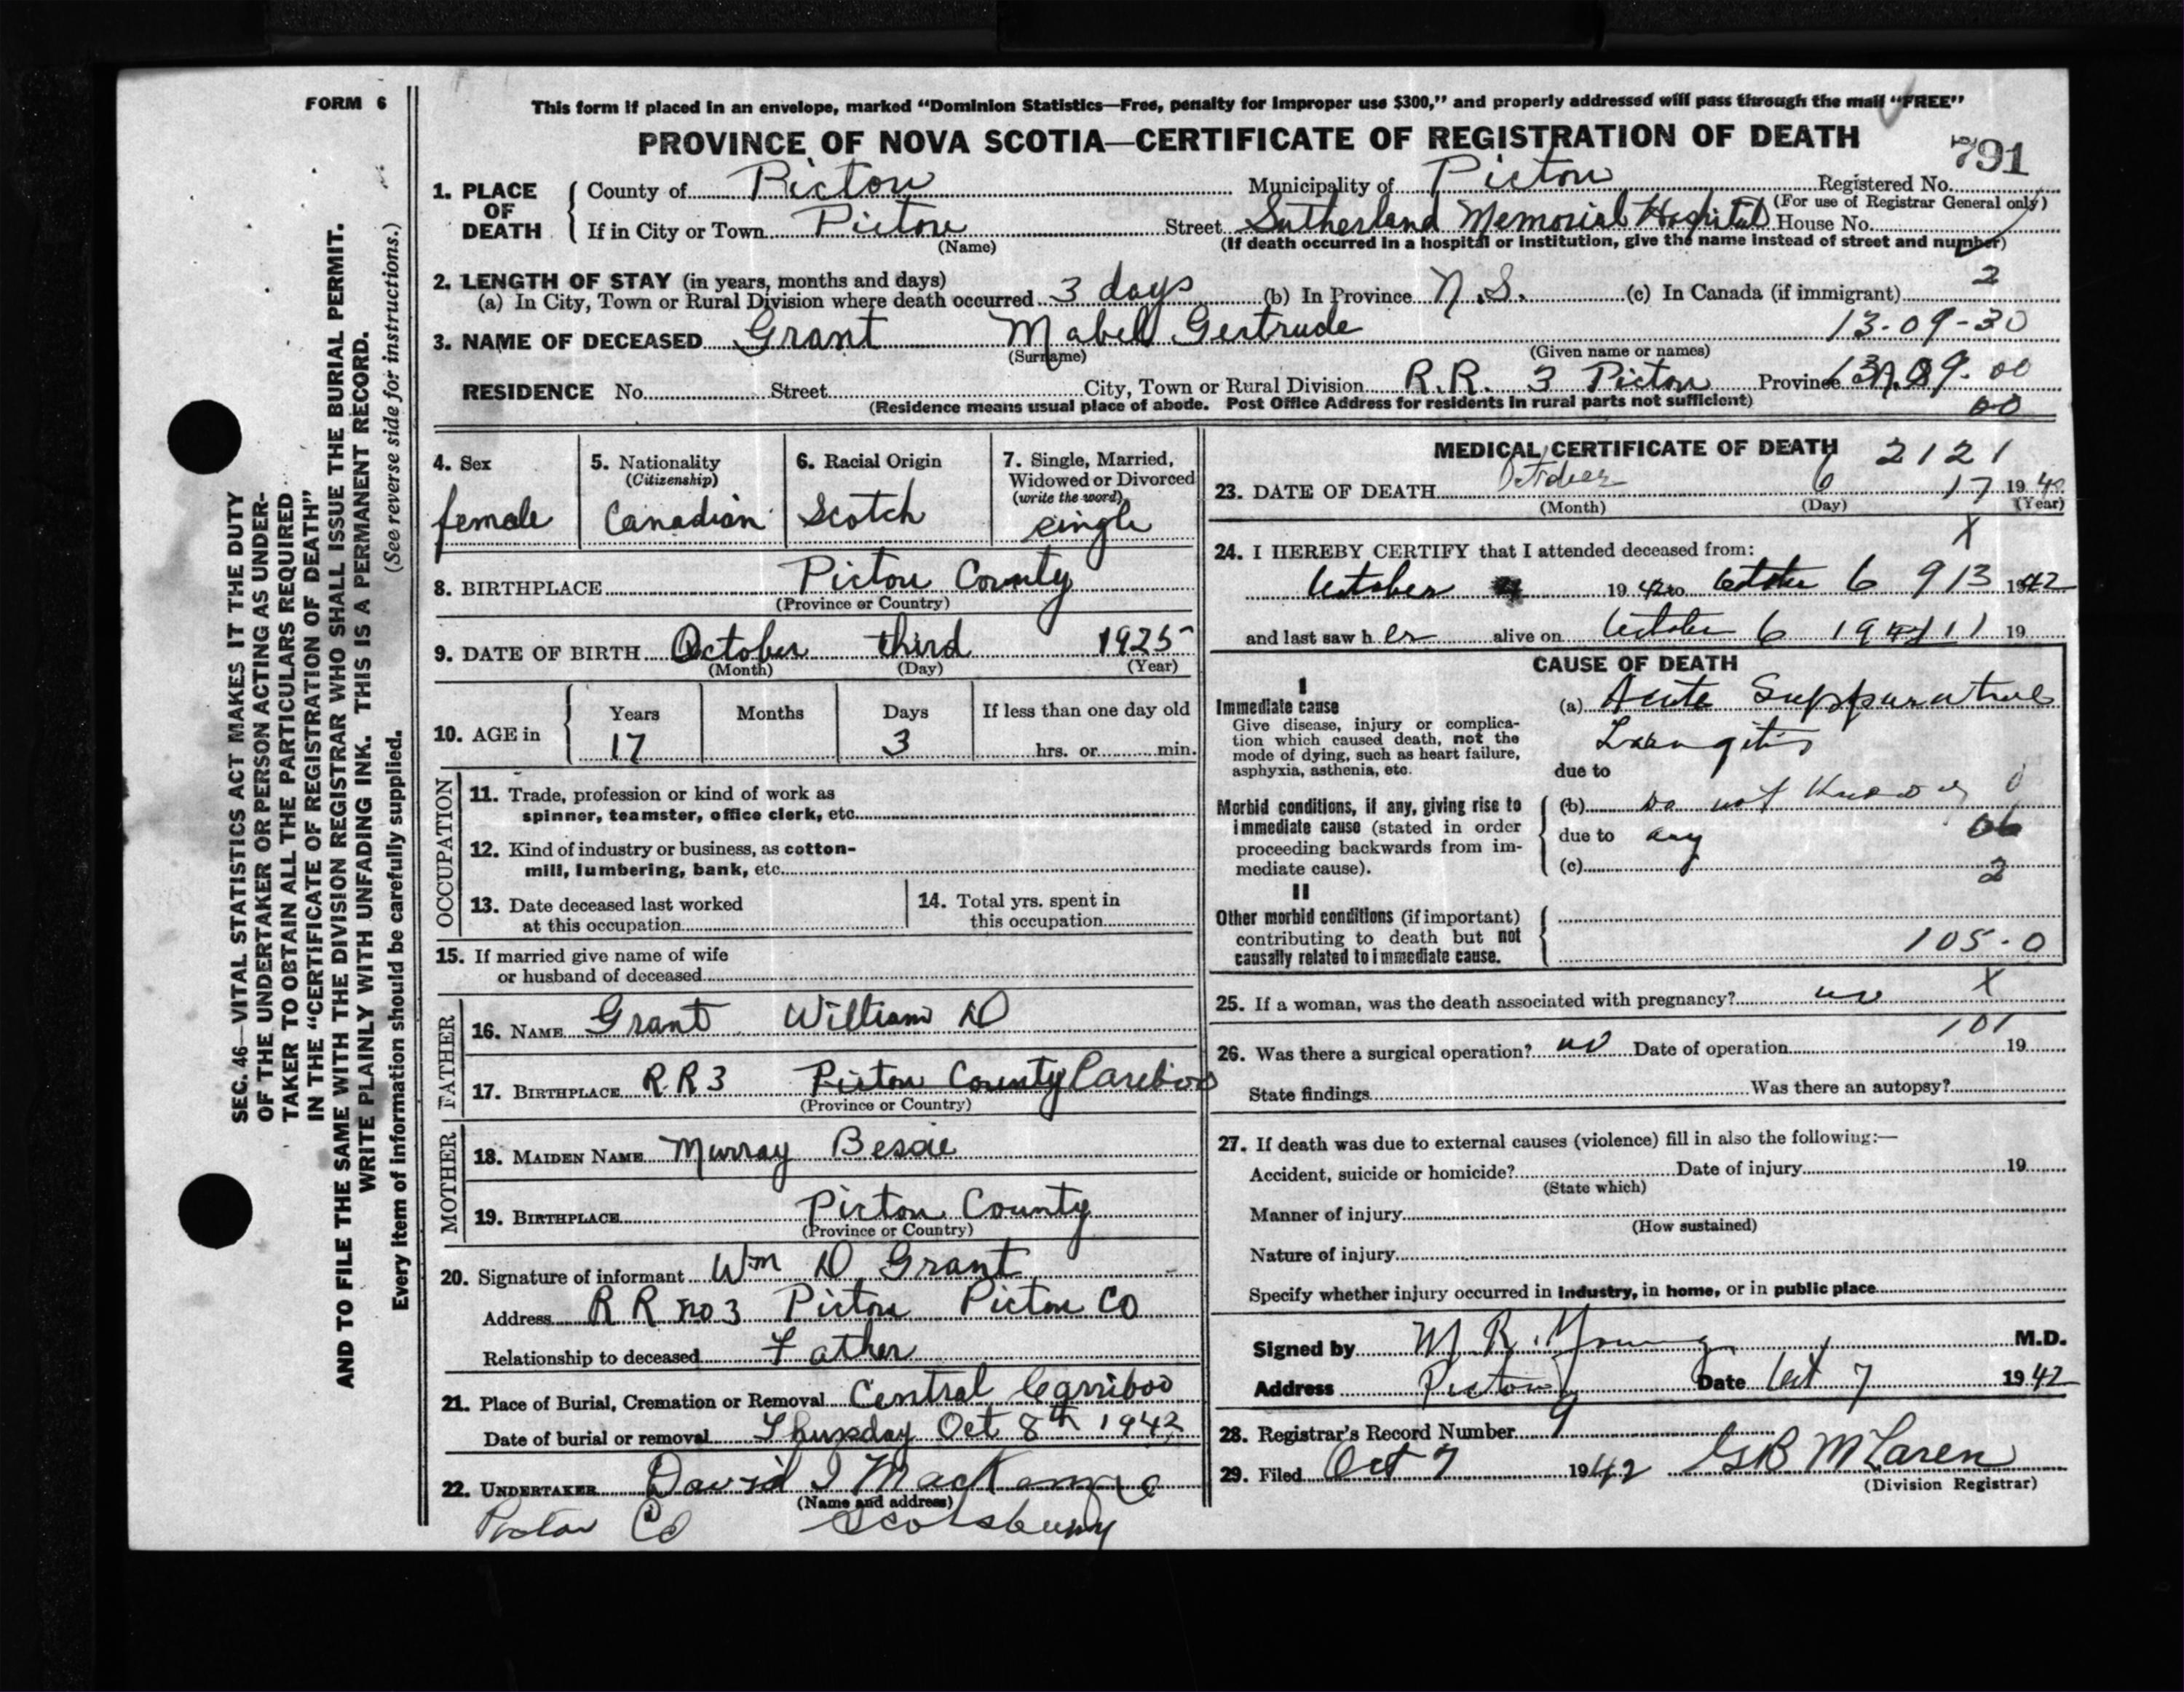 FORM 6
This form if placed in an envelope, marked "Dominion Statistics—Free, penalty for improper use $300," and properly addressed will pass through the mail "FREE"
PROVINCE OF NOVA SCOTIA—CERTIFICATE OF REGISTRATION OF DEATH
791
1. PLACE OF DEATH County of Pictou Municipality of Pictou Registered No.
(For use of Registrar General only)
If in City or Town Pictou Street Sutherland Memorial Hospital House No.
(Name) (If death occurred in a hospital or institution, give the name instead of street and number)
2. LENGTH OF STAY (in years, months and days) 2
(a) In City, Town or Rural Division where death occurred 3 days (b) In Province N.S. (c) In Canada (if immigrant)
3. NAME OF DECEASED Grant Mabel Gertrude 13-09-30
(Surname) (Given name or names)
RESIDENCE No. Street City, Town or Rural Division R.R. 3 Pictou Province 09-00
(Residence means usual place of abode. Post Office Address for residents in rural parts not sufficient) 00
4. Sex female
5. Nationality (Citizenship) Canadian
6. Racial Origin Scotch
7. Single, Married, Widowed or Divorced (write the word) single
8. BIRTHPLACE Pictou County
(Province or Country)
9. DATE OF BIRTH October third 1925
(Month) (Day) (Year)
10. AGE in Years Months Days If less than one day old
17 3 hrs. or min.
OCCUPATION
11. Trade, profession or kind of work as spinner, teamster, office clerk, etc.
12. Kind of industry or business, as cotton-mill, lumbering, bank, etc.
13. Date deceased last worked at this occupation
14. Total yrs. spent in this occupation
15. If married give name of wife or husband of deceased
FATHER
16. NAME Grant William D
17. BIRTHPLACE R.R 3 Pictou County Cariboo
(Province or Country)
MOTHER
18. MAIDEN NAME Murray Bessie
19. BIRTHPLACE Pictou County
(Province or Country)
20. Signature of informant Wm D Grant
Address R R no 3 Pictou Pictou Co
Relationship to deceased Father
21. Place of Burial, Cremation or Removal Central Carriboo
Date of burial or removal Thursday Oct 8th 1942
22. UNDERTAKER David J MacKenzie
(Name and address)
Pictou Co Scotsburny
MEDICAL CERTIFICATE OF DEATH 2121
23. DATE OF DEATH October 6 17 1942
(Month) (Day) (Year)
X
24. I HEREBY CERTIFY that I attended deceased from:
October 4 1942 to October 6 913 1942
and last saw her alive on October 6 19 11 19
CAUSE OF DEATH
I
Immediate cause
Give disease, injury or complication which caused death, not the mode of dying, such as heart failure, asphyxia, asthenia, etc.
(a) Acute Suppurative
Laryngitis
due to
Morbid conditions, if any, giving rise to immediate cause (stated in order proceeding backwards from immediate cause).
(b) Do not know of
due to any 06
(c) 2
II
Other morbid conditions (if important) contributing to death but not causally related to immediate cause.
105-0
25. If a woman, was the death associated with pregnancy? no X
101
26. Was there a surgical operation? no Date of operation 19
State findings Was there an autopsy?
27. If death was due to external causes (violence) fill in also the following:—
Accident, suicide or homicide? Date of injury 19
(State which)
Manner of injury
(How sustained)
Nature of injury
Specify whether injury occurred in industry, in home, or in public place
Signed by M R Young M.D.
Address Pictou Date Oct 7 1942
28. Registrar's Record Number 9
29. Filed Oct 7 1942 GB McLaren
(Division Registrar)
SEC. 46—VITAL STATISTICS ACT MAKES IT THE DUTY
OF THE UNDERTAKER OR PERSON ACTING AS UNDER-
TAKER TO OBTAIN ALL THE PARTICULARS REQUIRED
IN THE "CERTIFICATE OF REGISTRATION OF DEATH"
AND TO FILE THE SAME WITH THE DIVISION REGISTRAR WHO SHALL ISSUE THE BURIAL PERMIT.
WRITE PLAINLY WITH UNFADING INK. THIS IS A PERMANENT RECORD.
(See reverse side for instructions.)
Every item of information should be carefully supplied.